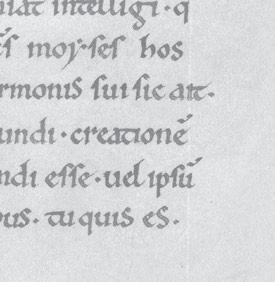 intelligi · q
moyses hos
rmonis sui sic ait.
undi · creationē
ndi esse · uel ipsū
bus. tu quis es.